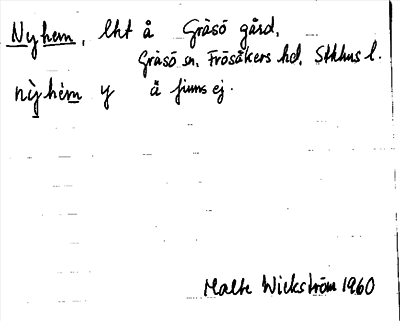 Nyhem, lht å Gräsö gård,
Gräsö sn, Frösåkers hd, Sthlms l.
nỳhèm y å finns ej.
Malte Wickström 1960